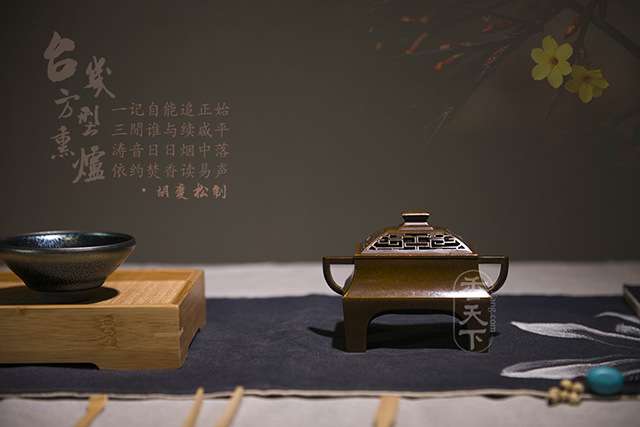 台幾方型熏爐
一记自能追正始
三閒谁与续咸平
涛音日日烟中落
依约焚香读易声
·胡夔松制
香天下